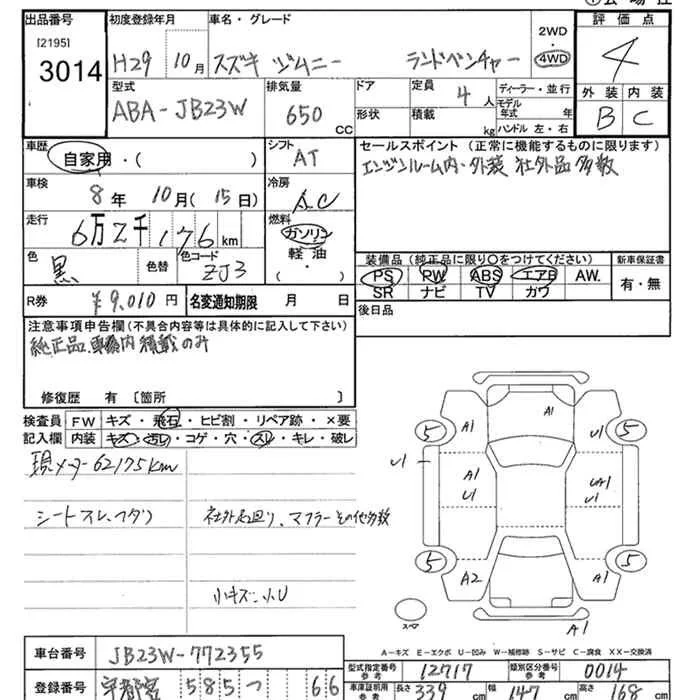 出品番号 初度登録年月 車名・グレード 2WD 評価点
[2195] 3014 H29 10月 スズキ ジムニー ランドベンチャー ・4WD 4
型式 排気量 ドア 定員 4人 ディーラー・並行 外装 内装
ABA-JB23W 650cc 形状 積載 kg モデル年式 年 ハンドル 左・右 B C
車歴 自家用・( ) シフト AT セールスポイント(正常に機能するものに限ります)
エンジンルーム内・外装 社外品多数
車検 8年 10月(15日) 冷房 AC
走行 6万2千176km 燃料 ガソリン 軽油 ・( )
色 黒 色替 色コード ZJ3
装備品(純正品に限り○をつけてください) 新車保証書
PS RW ABS エアB AW. 有・無
SR ナビ TV カワ
R券 ¥9,010円 名変通知期限 月 日
後日品
注意事項申告欄(不具合内容等は具体的に記入して下さい)
純正品、車輌内積載のみ
修復歴 有〔箇所 〕
検査員 FW キズ・飛石・ヒビ割・リペア跡・×要
記入欄 内装 キズ・汚れ・コゲ・穴・スレ・キレ・破レ
現メーター62175km
シートスレ、フタリ 社外足廻り、マフラーその他多数
小キズ・小U
5 A1 A1 U1 5
U1 A1 U1 UA1 U1
5 A2 A1 5
スペア A1
A-キズ E-エクボ U-凹み W-補修跡 S-サビ C-腐食 XX-交換済
車台番号 JB23W-772355
型式指定番号 参考 12717 類別区分番号 参考 0014
登録番号 宇都宮 585つ 66
車庫証明用 参考 長さ 339cm 幅 147cm 高さ 168cm